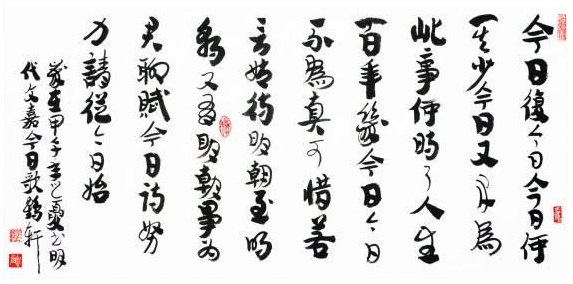 今日復今日今日何
其少今日又不為
此事何時了人生
百年幾今日今日
不為真可惜若
言姑待明朝至明
朝又有明朝事为
君聊賦今日詩努
力請從今日始
歲在甲午年之夏书明
代文嘉今日歌轩